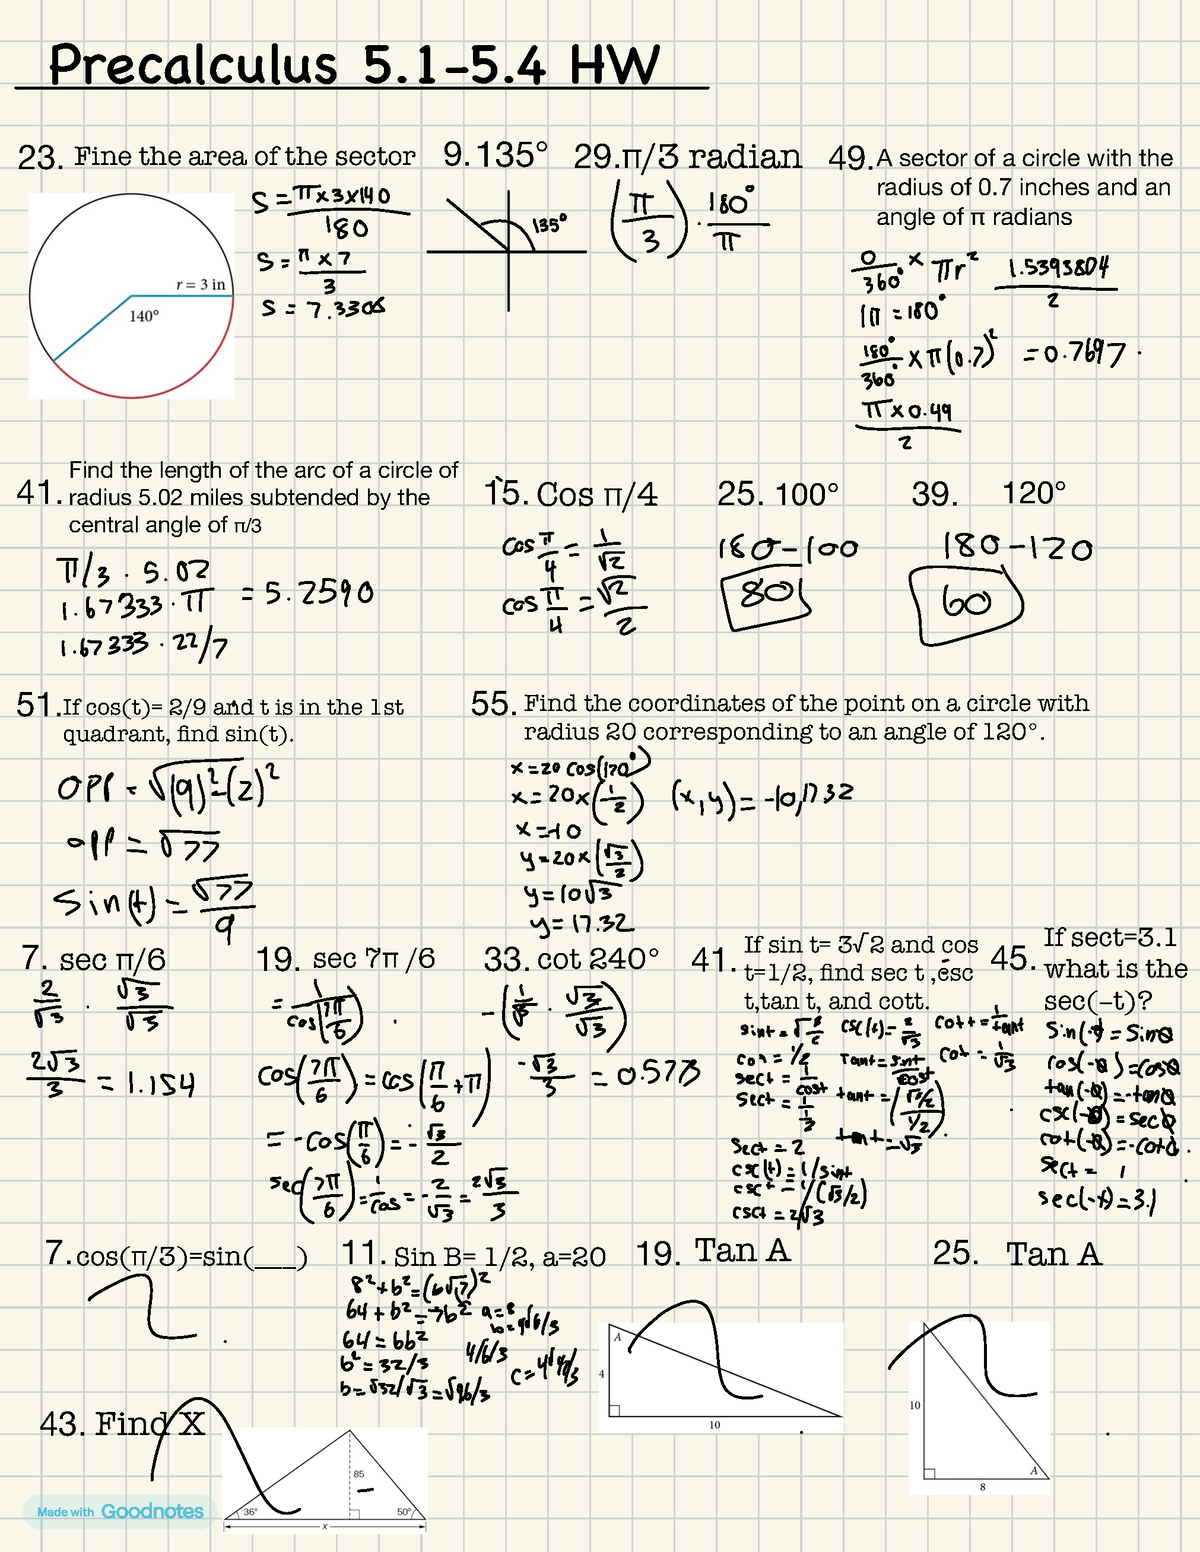 Precalculus 5.1-5.4 HW
23. Fine the area of the sector
r = 3 in
140°
S = π×3×140
180
S = π × 7
3
S = 7.330s
9. 135°
135°
29. π/3 radian
(π/3) · 180°/π
49. A sector of a circle with the
radius of 0.7 inches and an
angle of π radians
0/360° × πr²
1π = 180°
180°/360° × π(0.7)²
π×0.49
2
1.5393804
2
= 0.7697
41. Find the length of the arc of a circle of
radius 5.02 miles subtended by the
central angle of π/3
π/3 · 5.02
1.67333 · π = 5.2590
1.67333 · 22/7
15. Cos π/4
cos π/4 = 1/√2
cos π/4 = √2/2
25. 100°
180-100
80
39. 120°
180-120
60
51. If cos(t)= 2/9 and t is in the 1st
quadrant, find sin(t).
opp = √(9)²-(2)²
opp = √77
Sin(t) = √77/9
55. Find the coordinates of the point on a circle with
radius 20 corresponding to an angle of 120°.
x = 20 cos(120°)
x = 20×(-1/2)
x = -10
y = 20×(√3/2)
y = 10√3
y = 17.32
(x,y) = -10,1732
7. sec π/6
2/√3 · √3/√3
2√3/3 = 1.154
19. sec 7π /6
= 1/cos(7π/6)
cos(7π/6) = cos(π/6 + π)
= -cos(π/6) = -√3/2
sec(7π/6) = 1/cos = -2/√3 = 2√3/3
33. cot 240°
√3/√3
-√3/3 = 0.573
41. If sin t= 3√2 and cos
t=1/2, find sec t ,csc
t,tan t, and cott.
cos = 1/2
sect = 1/cost
Sect = 2
csc(t) = 1/sint
csct = 1/(√3/2)
csct = 2/√3
csc(t) = 2/√3
Tant = sint/cost
tant = (√3/2 / 1/2)
tant = √3
cott = 1/tant
cot = 1/√3
45. If sect=3.1
what is the
sec(-t)?
cos(-θ) = cosθ
tan(-θ) = -tanθ
csc(-θ) = secθ
cot(-θ) = -cotθ
sect = 1
sec(-t) = 3.1
7. cos(π/3)=sin(___)
11. Sin B= 1/2, a=20
8²+b²=(b√7)²
64 + b² = 7b²
64 = 6b²
b² = 32/3
b = √32/√3 = √96/3
a = 8
b = 4√6/3
4√6/3
19. Tan A
A
4
10
25. Tan A
10
A
8
43. Find X
85
36°
50°
x
Made with Goodnotes